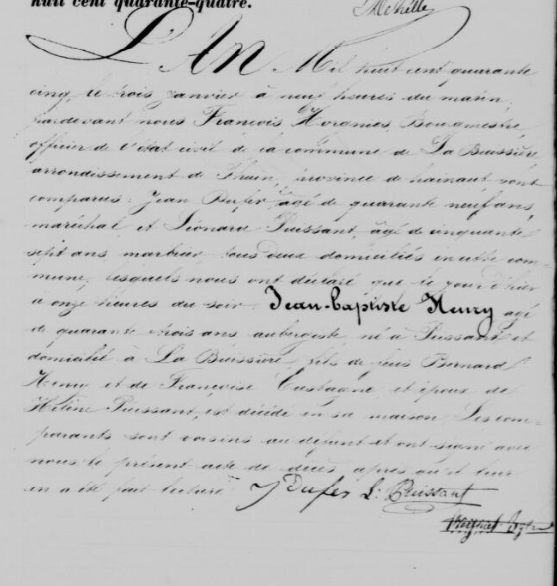 huit cent quarante-quatre.
L'AN Mil huit cent quarante
cinq, le trois janvier à neuf heures du matin,
pardevant nous François Bourgmestre,
officier de l'état civil de la commune de La Buissière,
arrondissement de Thuin, province de hainaut sont
comparus: Jean Dufer âgé de quarante neuf ans,
maréchal et Léonard Puissant, âgé de cinquante
sept ans marbrier, tous deux domiciliés en cette com-
mune, lesquels nous ont déclaré que le jour d'hier
à onze heures du soir Jean-baptiste Henry agé
de quarante trois ans aubergiste, né à et
domicilié à La Buissière, fils de feus Bernard
Henry et de Françoise Castagne et époux de
Hélène Puissant, est décédé en sa maison. Les com-
parants sont voisins au défunt et ont signé avec
nous le présent acte de décès après qu'il leur
en a été fait lecture J Dufer L. Puissant